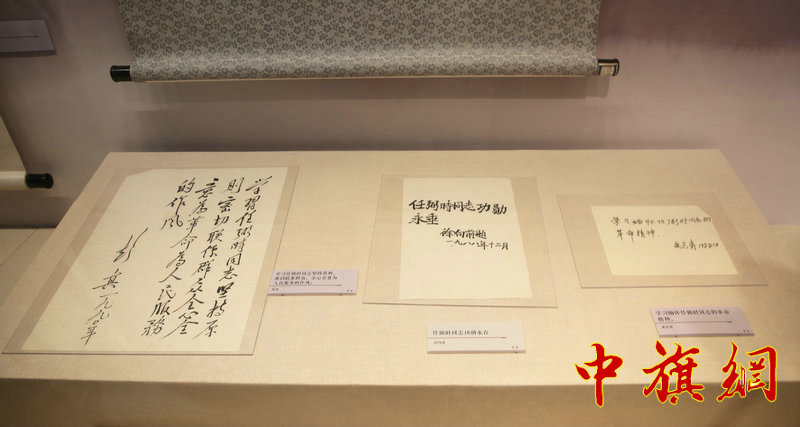 学習任弼時同志坚持原
則密切联係群众全心全
意為革命為人民服務
的作風
彭真一九九〇年
学习任弼时同志坚持原则、
密切联系群众、全心全意为
人民服务的作风。
彭真
任弼時同志功勋
永垂
徐向前题
一九八八年十二月
任弼时同志功勋永存
徐向前
学习缅怀任弼时同志的
革命精神
学习缅怀任弼时同志的革命
精神。
中旗網